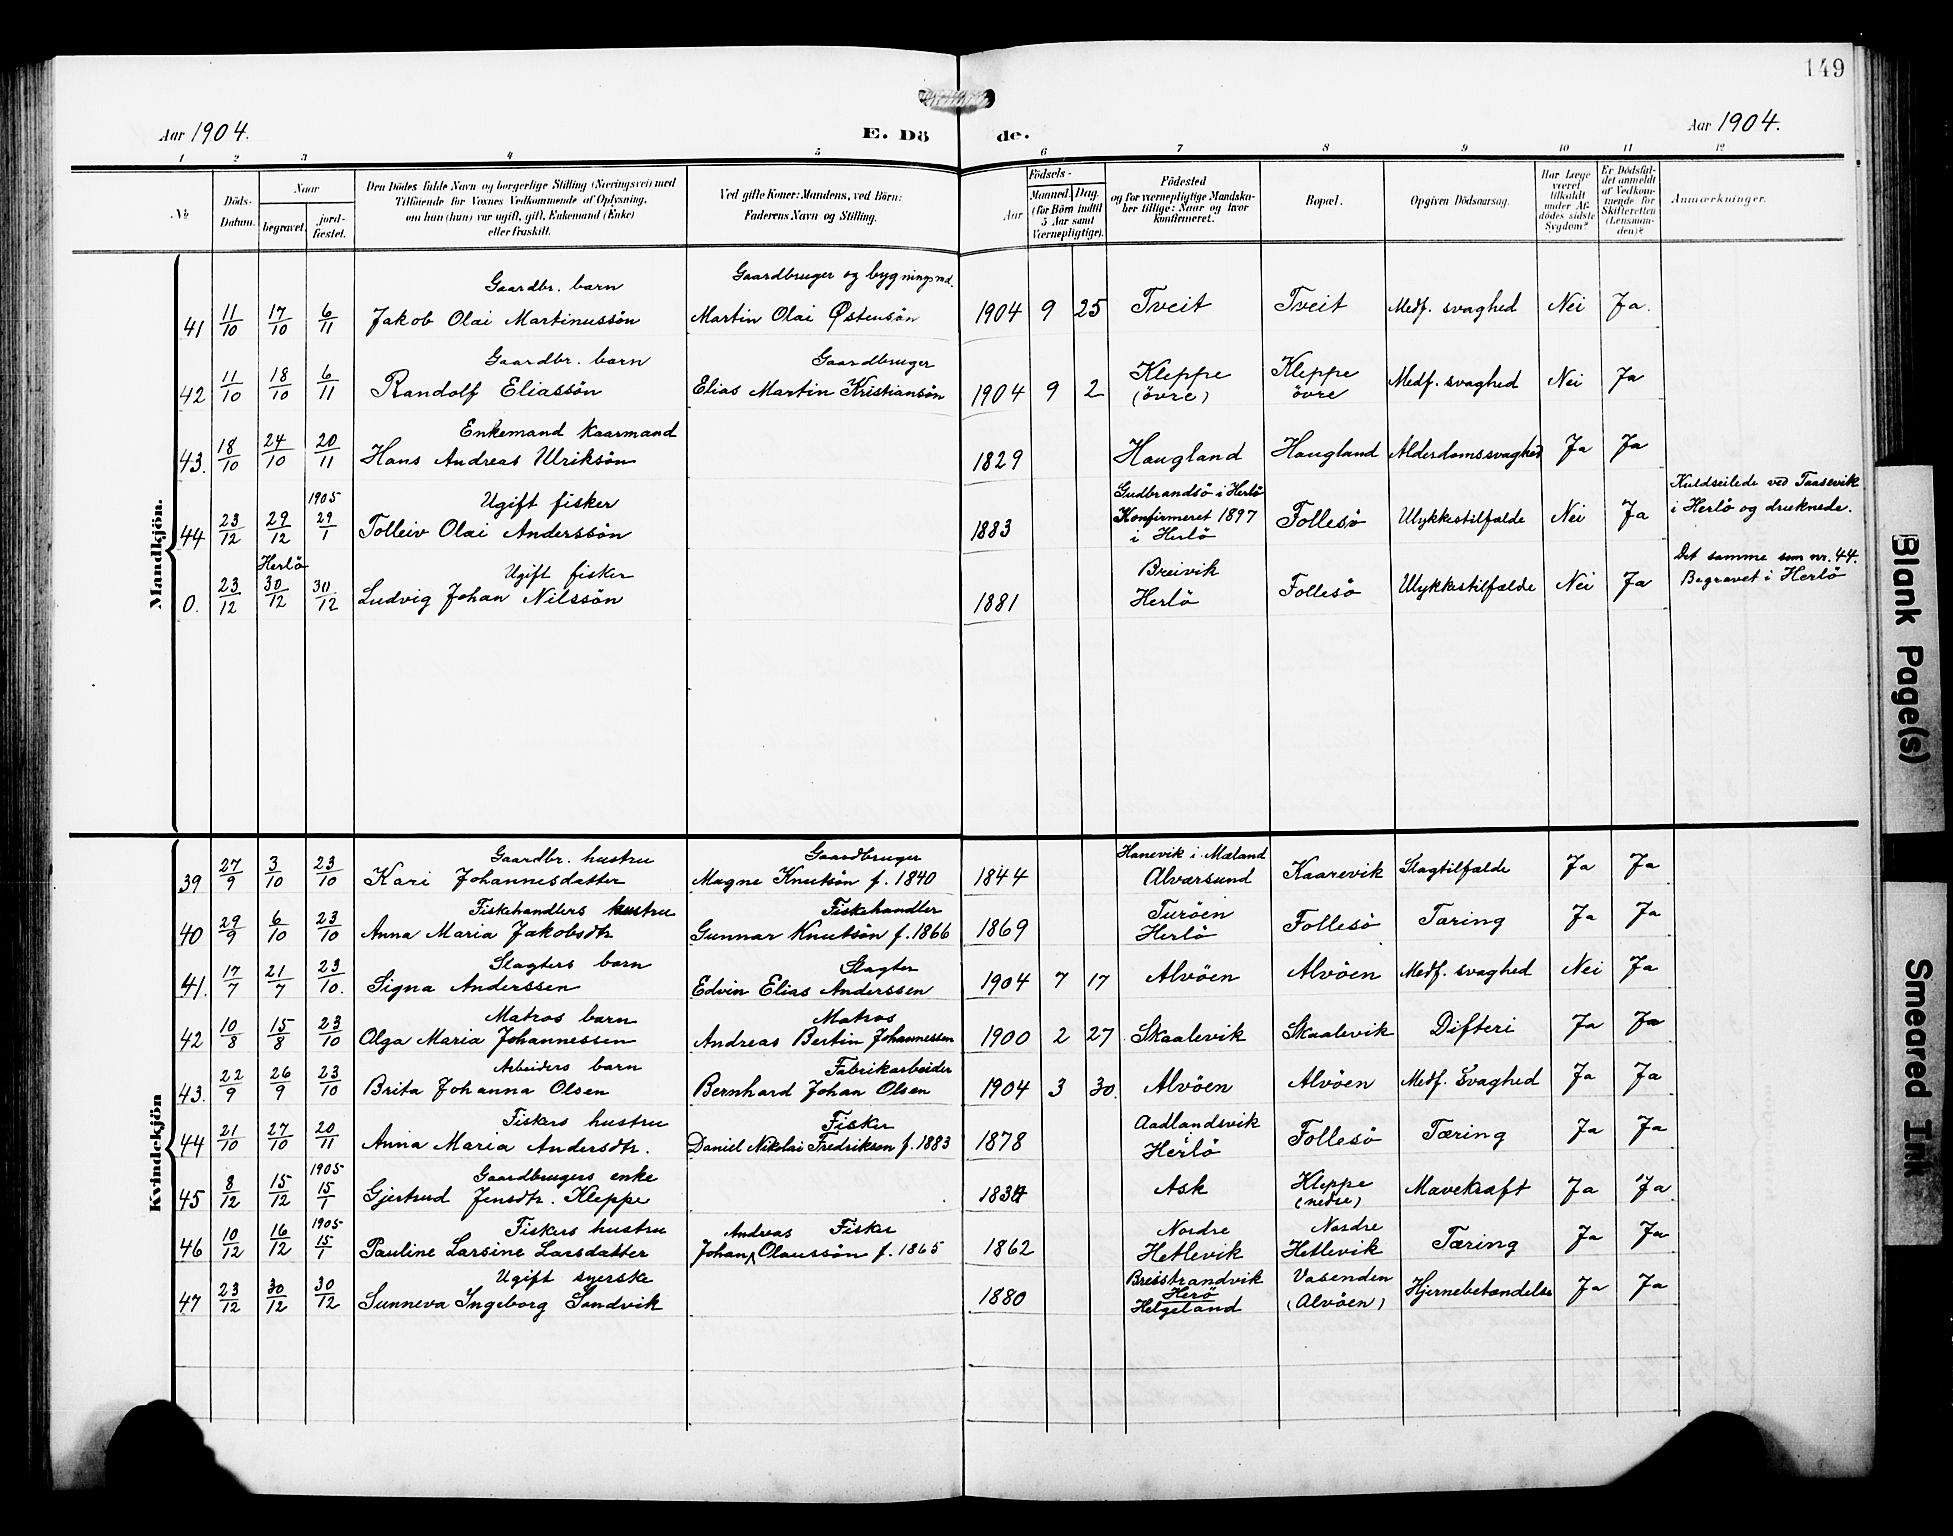 149
Aar 1904.
E. Dö de.
Aar 1904.
1 2 3 3 4 5 6 7 8 9 10 11 12
№
Döds-Datum.
Naar
begravet.
jord-fæstet.
Den Dödes fulde Navn og borgerlige Stilling (Næringsvei) med
Tilföiende for Voxnes Vedkommende af Oplysning,
om han (hun) var ugift, gift, Enkemand (Enke)
eller fraskilt.
Ved gifte Koner: Mandens, ved Börn:
Faderens Navn og Stilling.
Födsels-
Aar
Maaned. Dag.
(for Börn indtil
5 Aar samt
Værnepligtige).
Födested
og for værnepligtige Mandska-
ber tillige: Naar og hvor
konfirmeret.
Bopæl.
Opgiven Dödsaarsag.
Har Læge
været
tilkaldt
under Af-
dödes sidste
Sygdom?
Er Dödsfal-
det anmeldt
af Vedkom-
mende for
Skifteretten
(Lensman-
den)?
Anmærkninger.
Mandkjön.
Gaardbr. barn Gaardbruger og bygningsmd.
41 11/10 17/10 6/11 Jakob Olai Martinussön Martin Olai Østensön 1904 9 25 Tveit Tveit Medf. svaghed Nei Ja.
Gaardbr. barn Gaardbruger
42 11/10 18/10 6/11 Randolf Eliassön Elias Martin Kristiansön 1904 9 2 Kleppe (övre) Kleppe övre Medf. svaghed Nei Ja
Enkemand Kaarmand
43. 18/10 24/10 20/11 Hans Andreas Ulriksön 1829 Haugland Haugland Alderdomssvaghed Ja Ja
1905 Ugift fisker Gudbrandsö i Herlö Kuldseilede ved Taasevik
44 23/12 29/12 29/1 Tolleiv Olai Anderssön 1883 Konfirmeret 1897 i Herlö Follesö Ulykkestilfælde Nei Ja i Herlö og druknede.
Herlö Ugift fisker Breivik Det samme som nr. 44.
0. 23/12 30/12 30/12 Ludvig Johan Nilssön 1881 Herlö Follesö Ulykkestilfælde Nei Ja Begravet i Herlö
Kvindekjön
Gaardbr. hustru Gaardbruger Hanevik i Mæland
39 27/9 3/10 23/10 Kari Johannesdatter Magne Knutsön f. 1840 1844 Alværsund Kaarevik Slagtilfælde Ja Ja
Fiskehandlers hustru Fiskehandler Turöen
40 29/9 6/10 23/10 Anna Maria Jakobsdtr Gunnar Knutsön f. 1866 1869 Herlö Follesö Tæring Ja Ja
Slagters barn Slagter
41. 17/7 21/7 23/10. Signa Anderssen Edvin Elias Anderssen 1904 7 17 Alvöen Alvöen Medf. svaghed Nei Ja
Matros barn Matros
42 10/8 15/8 23/10 Olga Maria Johannessen Andreas Bertin Johannessen 1900 2 27 Skaalevik Skaalevik Difteri Ja Ja
Arbeiders barn Fabrikarbeider
43. 22/9 26/9 23/10 Brita Johanna Olsen Bernhard Johan Olsen 1904 3 30. Alvöen Alvöen Medf. Svaghed Ja Ja
Fiskers hustru Fisker Aadlandsvik
44 21/10 27/10 20/11 Anna Maria Andersdtr. Daniel Nikolai Fredriksen f. 1883 1878 Herlö Follesö Tæring Ja Ja
1905 Gaardbrugers enke
45 8/12 15/12 15/1 Gjertrud Jensdtr. Kleppe Ask Kleppe (nedre) Mavekræft Ja Ja
1905 Fiskers hustru Andreas Fisker Nordre Nordre
46 10/12 16/12 15/1 Pauline Larsine Larsdatter Johan Olaussön f. 1865 1862 Hetlevik Hetlevik Tæring Ja Ja
Ugift syerske Breistrandvik Vasenden
47 23/12 30/12 30/12 Sunneva Ingeborg Sandvik 1880 Herö Helgeland (Alvöen) Hjernebetændelse Ja Ja
Blank Page(s)
Smeared Ink